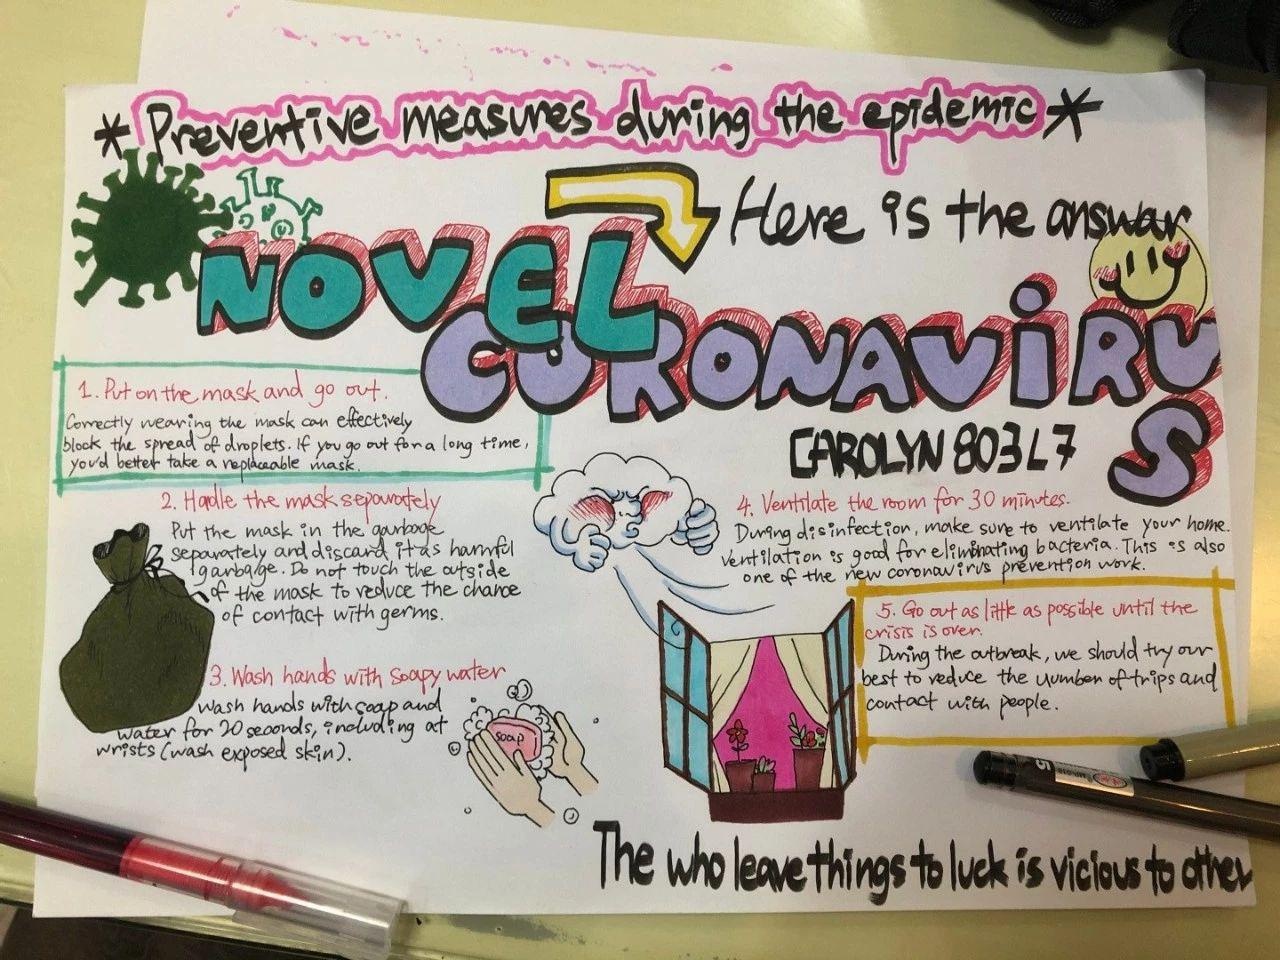 * Preventive measures during the epidemic *
Here is the answar
NOVEL
CORONAVIRUS
CAROLYN 803 L7
1. Put on the mask and go out.
Correctly wearing the mask can effectively
block the spread of droplets. If you go out for a long time,
you'd better take a replaceable mask.
2. Hadle the mask separately
Put the mask in the garbage
separately and discard it as harmful
garbage. Do not touch the outside
of the mask to reduce the chance
of contact with germs.
3. Wash hands with soapy water
Wash hands with soap and
water for 20 seconds, including at
wrists (wash exposed skin).
soap
4. Ventilate the room for 30 minutes.
During disinfection, make sure to ventilate your home.
Ventilation is good for eliminating bacteria. This is also
one of the new coronavirus prevention work.
5. Go out as little as possible until the
crisis is over.
During the outbreak, we should try our
best to reduce the number of trips and
contact with people.
The who leave things to luck is vicious to other